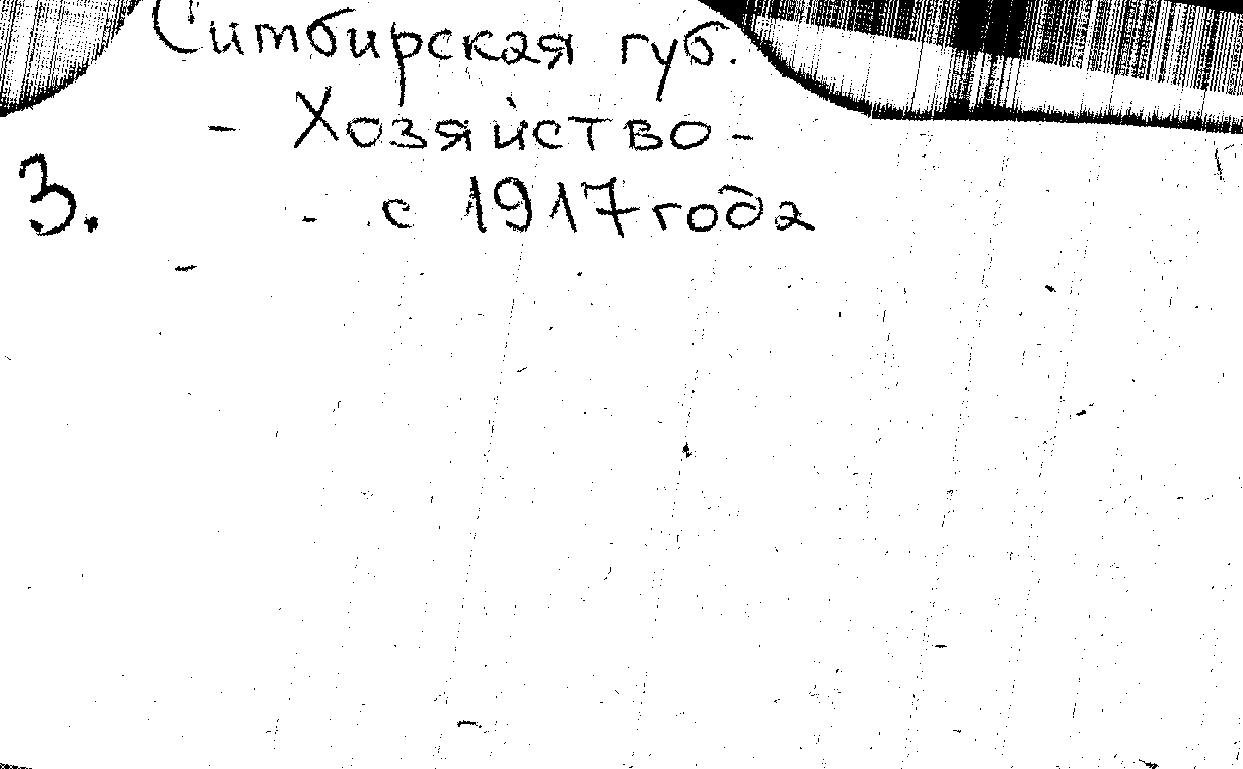 Симбирская губ.
- Хозяйство -
3. - с 1917 года